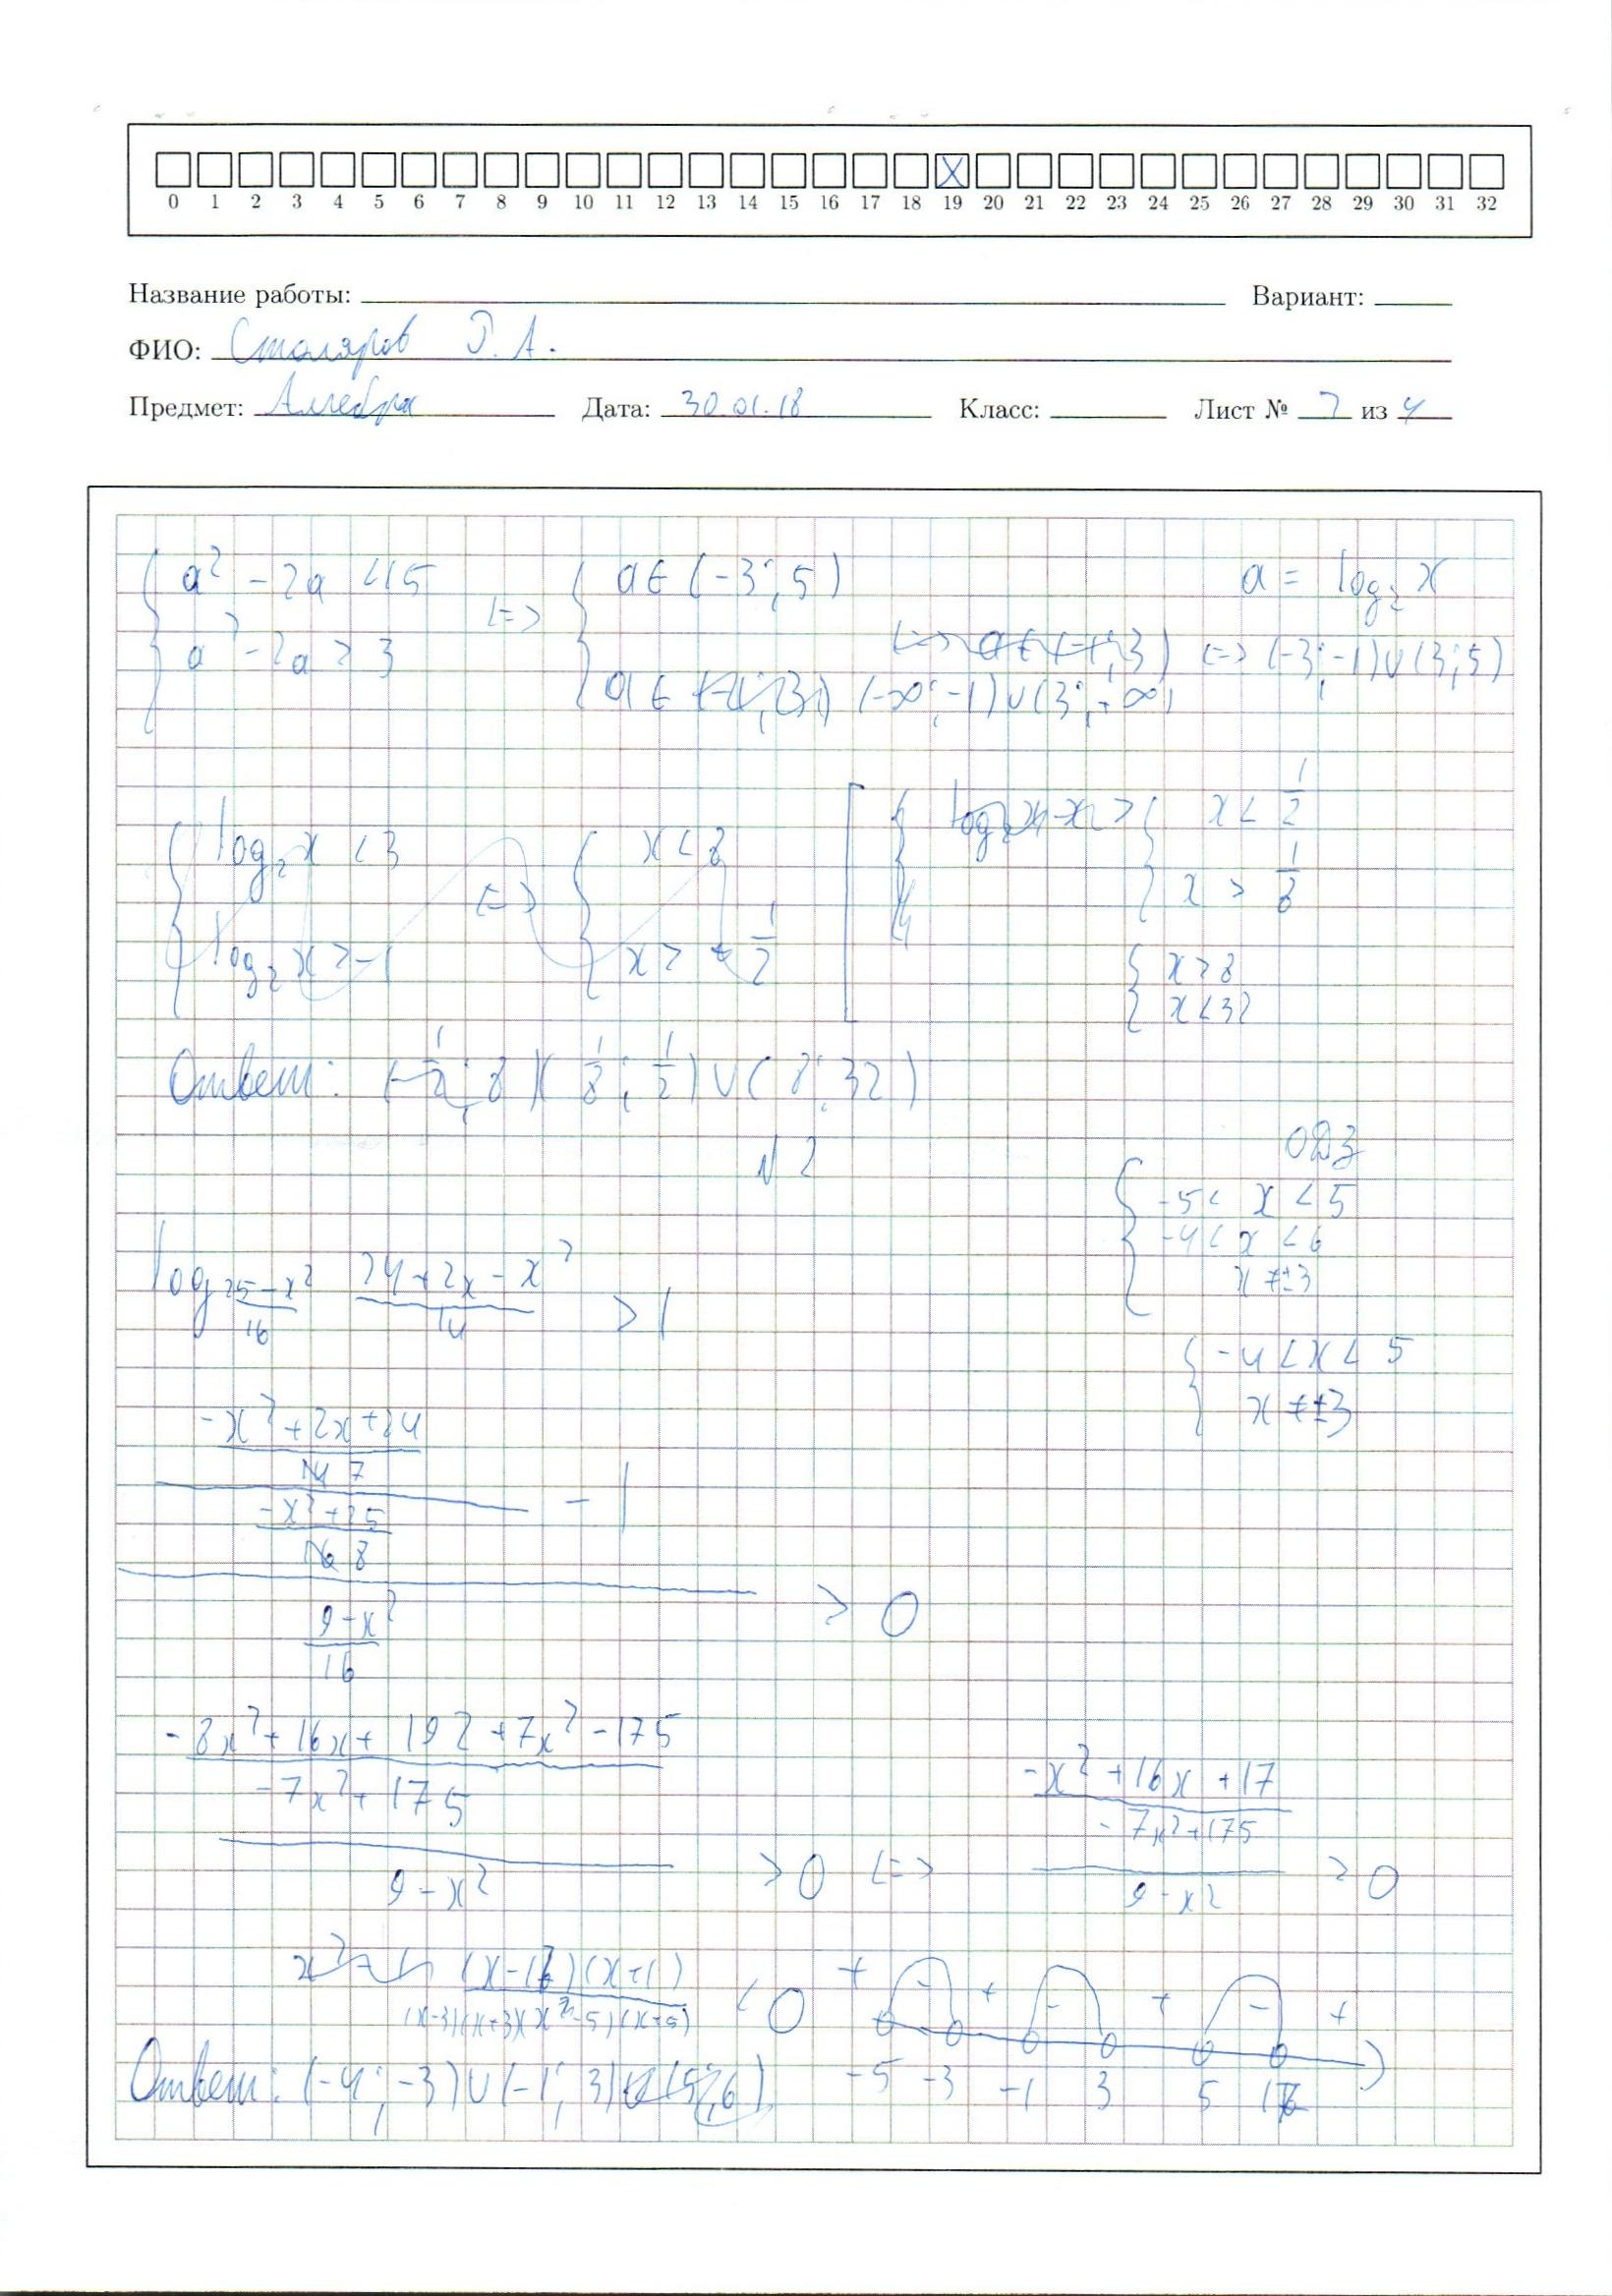 0 1 2 3 4 5 6 7 8 9 10 11 12 13 14 15 16 17 18 19 20 21 22 23 24 25 26 27 28 29 30 31 32
Название работы: Вариант:
ФИО: Столяров Р. А.
Предмет: Алгебра Дата: 30.01.18 Класс: Лист № 2 из 4
a² - 2a < 15 <=> a ∈ (-3; 5) a = log₂ x
a² - 2a > 3 a ∈ (-∞; -1) ∪ (3; +∞) <=> (-3; -1) ∪ (3; 5)
log₂ x < 3 <=> x < 8 x < 1/2
log₂ x > -1 x > 1/2 x > 1/8
x > 8
x < 32
Ответ: (1/8; 1/2) ∪ (8; 32)
№2 ОДЗ
-5 < x < 5
-4 < x < 6
x ≠ ±3
log (25-x²)/16 (24+2x-x²)/14 > 1
-4 < x < 5
x ≠ ±3
-x² + 2x + 24
7
-x² + 25 - 1
8
> 0
9 - x²
16
-8x² + 16x + 192 + 7x² - 175 -x² + 16x + 17
-7x² + 175 -7x² + 175
> 0 <=> > 0
9 - x² 9 - x²
(x-17)(x+1) < 0 + - + - + - +
(x-3)(x+3)(x-5)(x+5)
-5 -3 -1 3 5 17
Ответ: (-4; -3) ∪ (-1; 3)